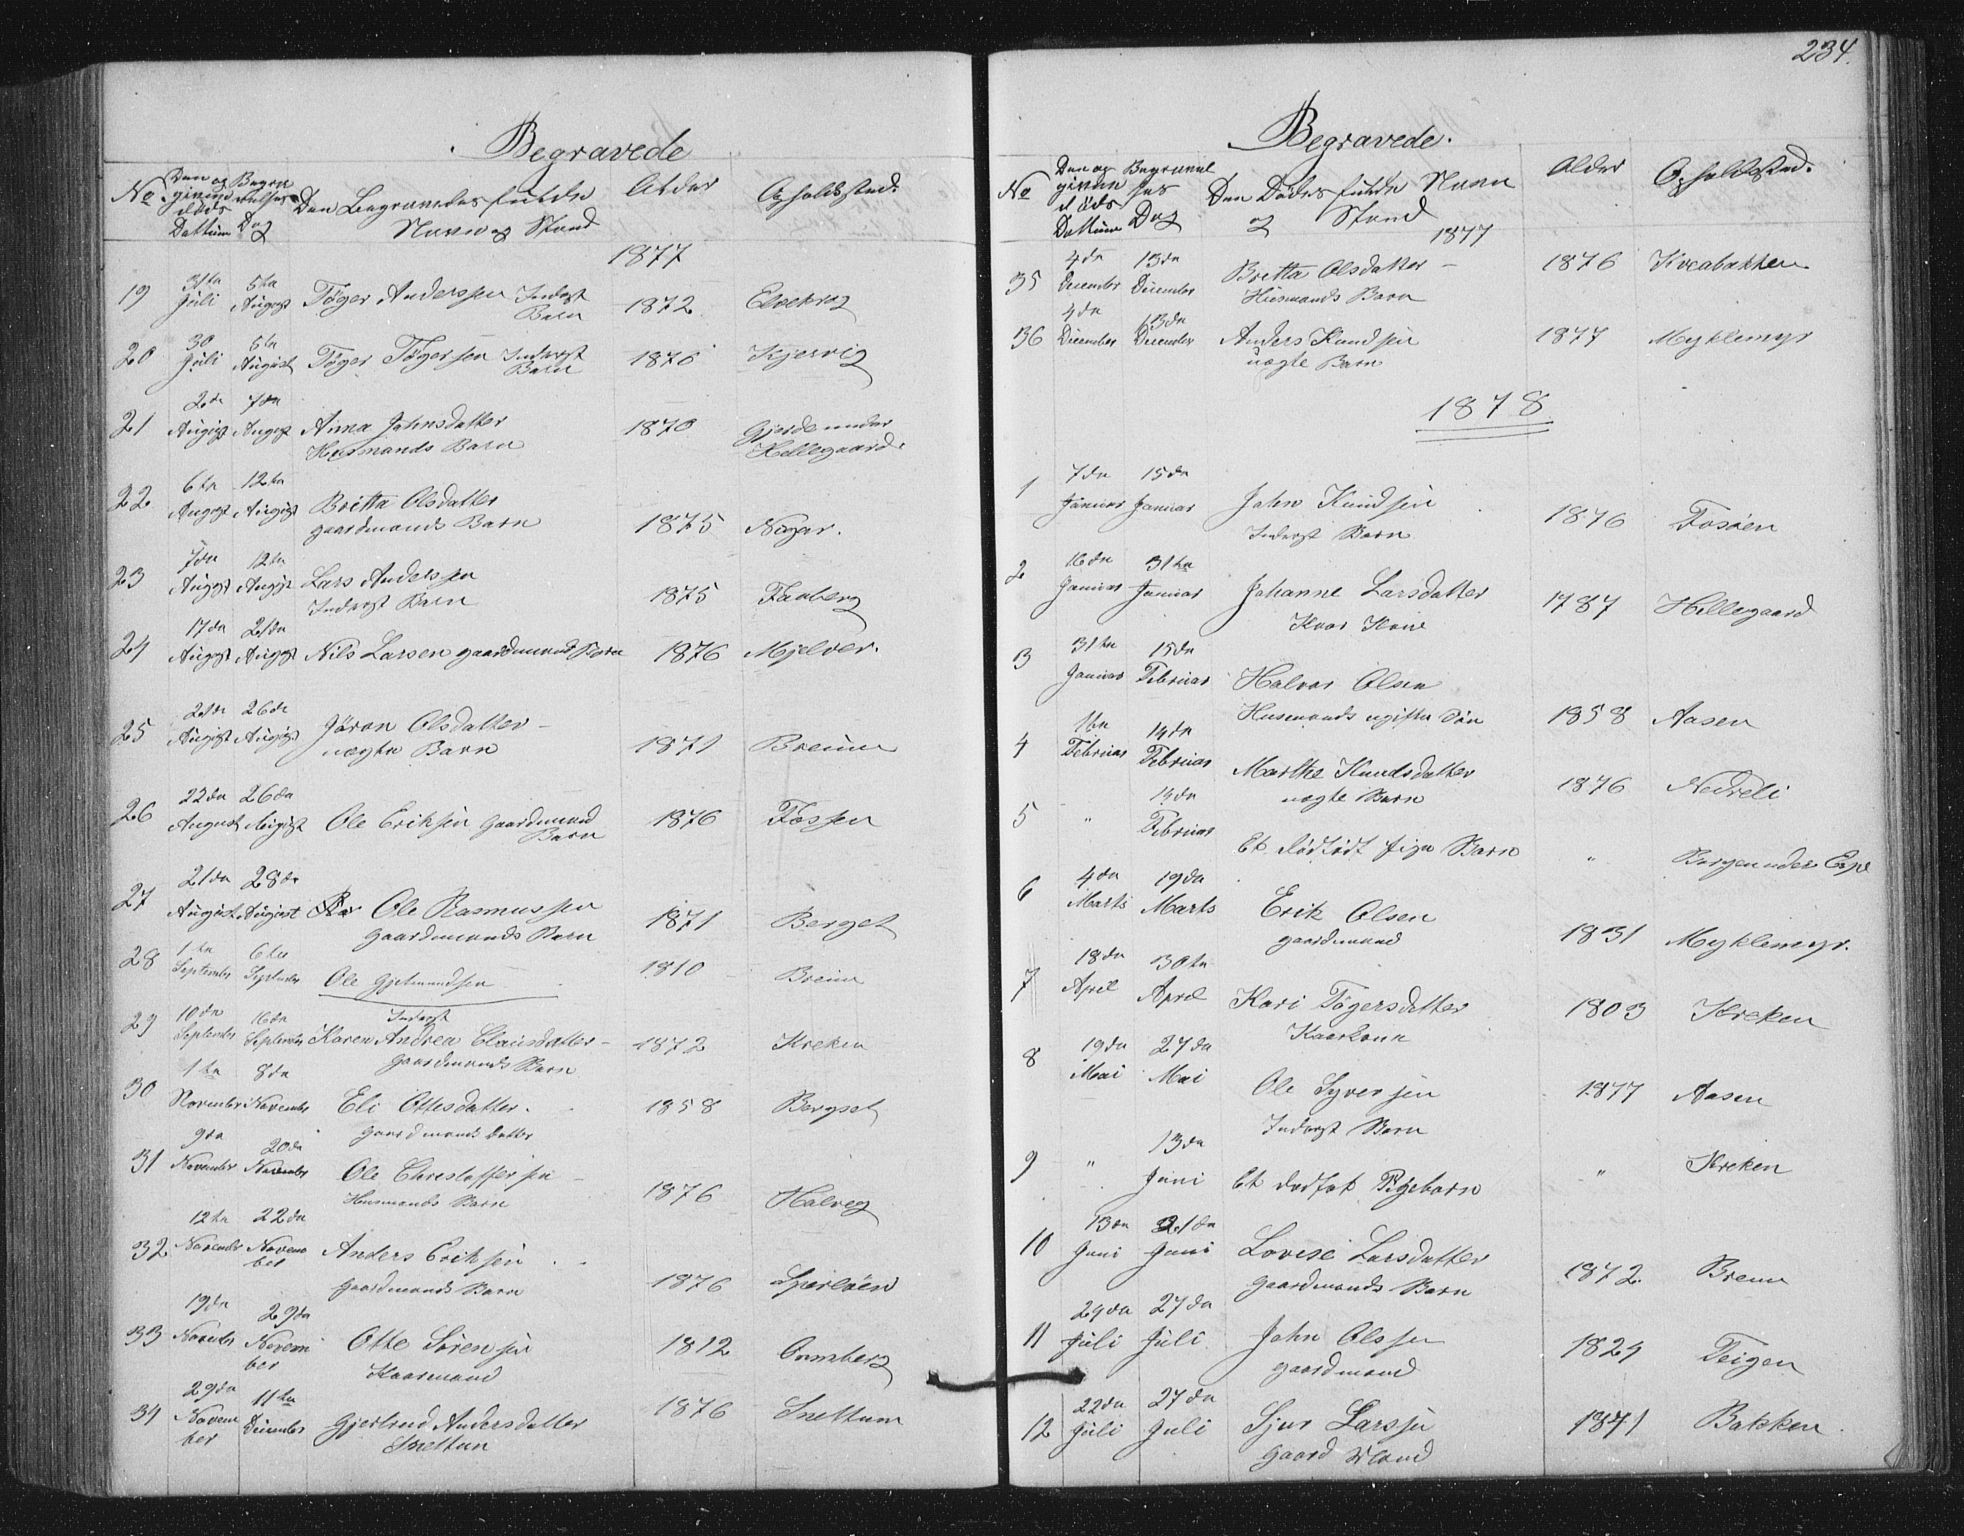 Begravede
No Den op givne Døds Dattum Begra velses Dag Den Begravedes fulde Navn og Stand Alder Opholdsted.
1877
19 31te Juli 5te August Tøger Anderssen Inderst Barn 1872 Elvekrog
20 30 Juli 5te August Tøger Tøgersen Inderst Barn 1876 Kjervig
21 2de August 7de August Anna Johnsdatter Husmands Barn 1870 Gjerde under Hellegaard.
22 6te August 12te August Britta Olsdatter gaardmands Barn 1875 Næger.
23 7de August 12te August Lars Anderssen Inderst Barn 1875 Faaberg
24 17de August 21de August Nils Larsen gaardmand Barn 1876 Mjelver.
25 21de August 26de August Jøran Olsdatter uægte Barn 1871 Breum
26 22de August 26de August Ole Eriksen gaardmand Barn 1876 Fossen
27 21de August 28de August Ole Rasmussen gaardmands Barn 1871 Berget
28 1te September 6te September Ole Gjelmundsen Inderst 1810 Breum
29 10de September 16de September Karen Andrea Clausdatter gaardmands Barn 1872 Kreken
30 1te November 8de November Eli Ottesdatter. gaardmands datter 1858 Bergset
31 9de November 20de November Ole Christoffersen Husmands Barn 1876 Halveg
32 12te November 22de Novem ber Anders Eriksen gaardmands Barn 1876 Sperløen
33 19de November 29de Novem ber Otte Sørensen Kaarmand 1812 Ormberg
34 29de Novem ber 11te December Gjertrud Andersdatter Snettun 1876 Snettum
234.
Begravede.
No Den op givne døds Dattum Begravel ses Dag Den Dødes fulde Navn og Stand Alder Opholdsted.
1877
35 4de December 13de December Britta Olsdatter Husmands Barn 1876 Kveabakken
36 4de December 13de December Anders Knudsen uægte Barn 1877 Myklemyr
1878
1 7de Januar 15de Januar John Knudsen Inderst Barn 1876 Fosøen
2 16de Januar 31te Januar Johanne Larsdatter Kaar Kone 1787 Hellegaard
3 31te Januar 15de Februar Halvor Olsen Husmands ugifte Søn 1858 Aasen
4 1te Februar 14de Februar Marthe Knudsdatter uægte Barn 1876 Nedreli
5 " 14de Februar Et dødfødt pige Barn " Bergen under Espe
6 4de Marts 19de Marts Erik Olsen gaardmand 1831 Myklemyr.
7 18de April 30te April Kari Tøgersdatter Kaarkone 1803 Kreken
8 19de Mai 27de Mai Ole Syversen Inderst Barn 1877 Aasen
9 " 13de Juni Et dødfødt Pigebarn " Kreken
10 13de Juni 21de Juni Lovise Larsdatter gaardmands Barn 1872. Breum
11 24de Juli 27de Juli John Olssen gaardmand 1824 Teigen
12 22de Juli 27de Juli Sjur Larssen gaard Mand 1841 Bakken